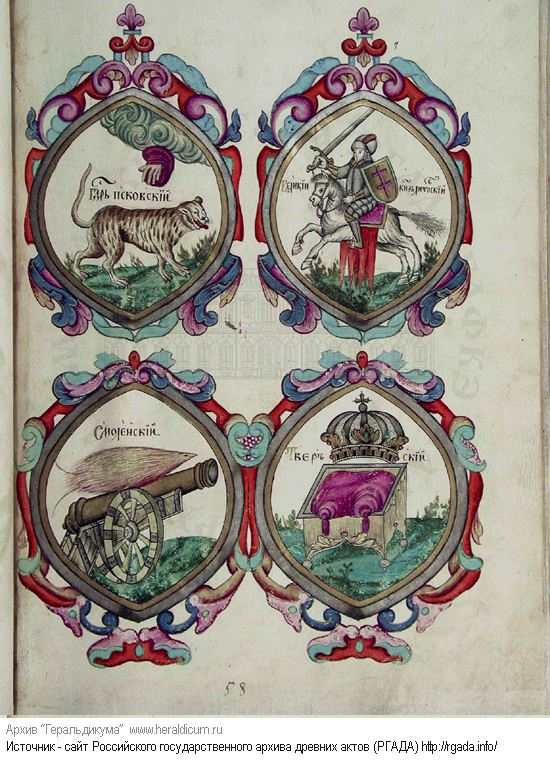 Гдрь псковскій
Смоленскій
Тверьскій
58
Архив "Геральдикума" www.heraldicum.ru
Источник - сайт Российского государственного архива древних актов (РГАДА) http://rgada.info/